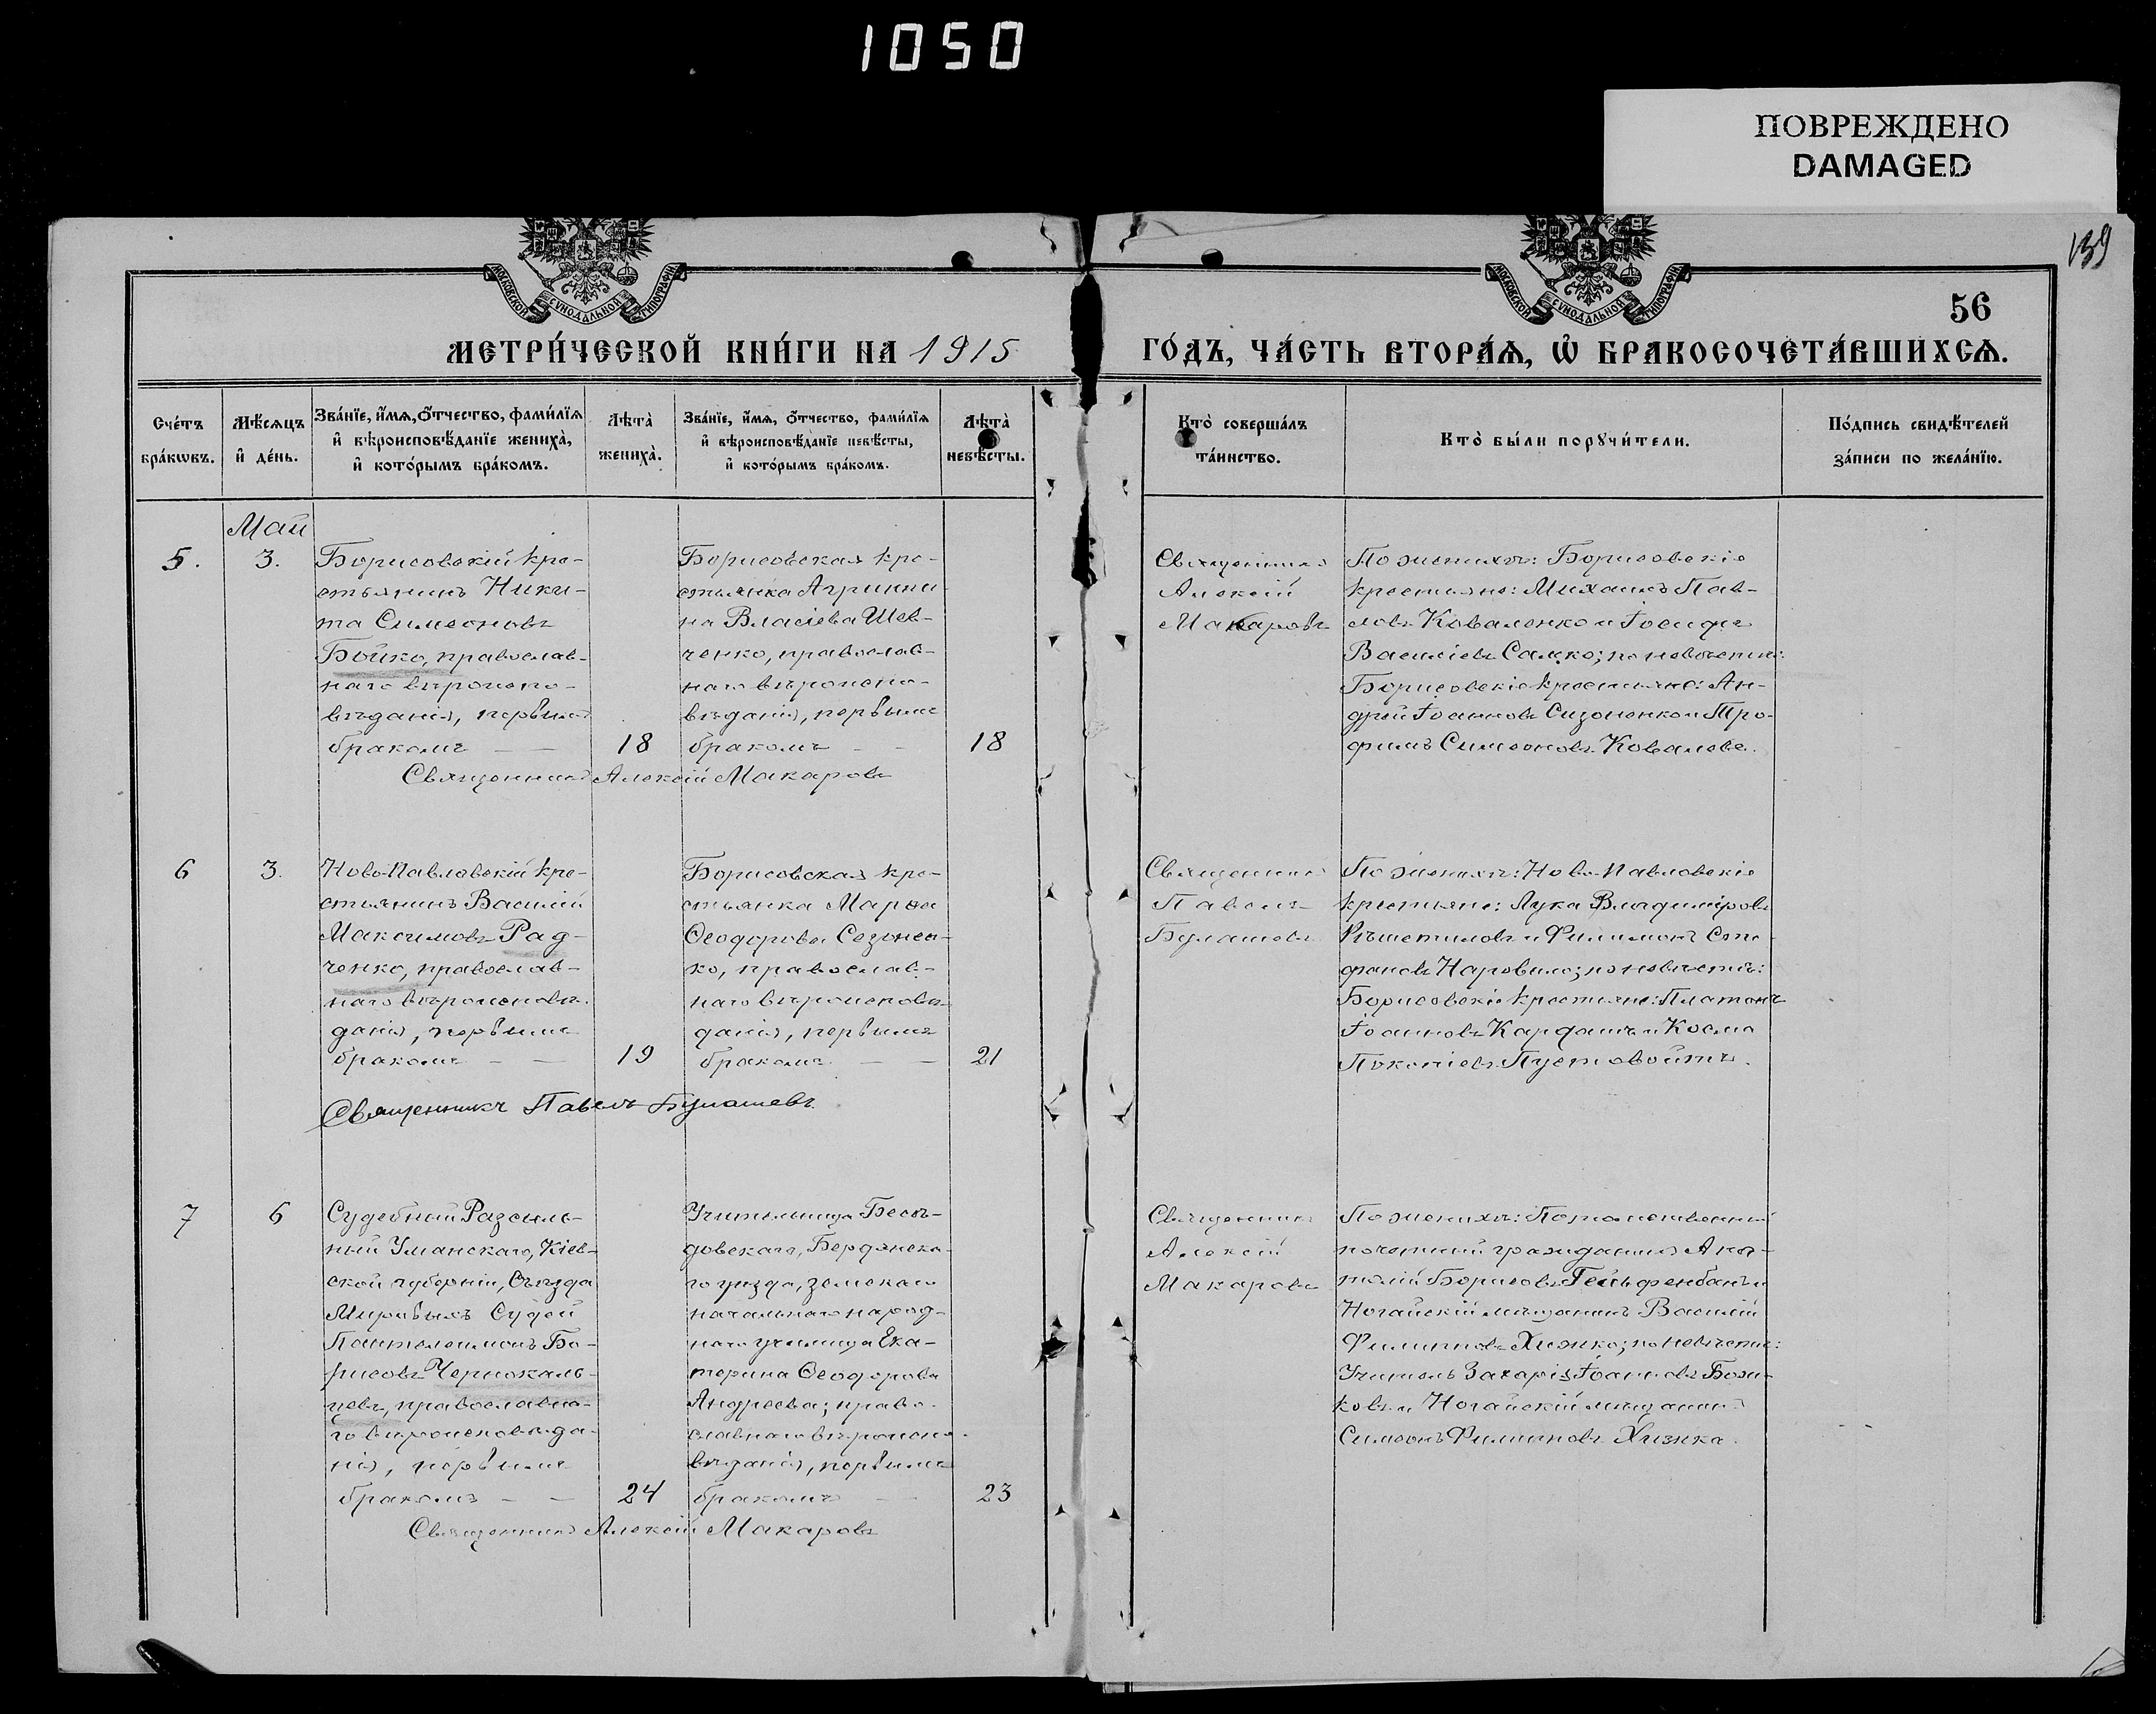 1050
ПОВРЕЖДЕНО
DAMAGED
139
56
МОСКОВСКОЙ СѴНОДАЛЬНОЙ ТИПОГРАФІИ
МОСКОВСКОЙ СѴНОДАЛЬНОЙ ТИПОГРАФІИ
МЕТРИ́ЧЕСКОЙ КНИ́ГИ НА 1915 ГО́ДЪ, ЧА́СТЬ ВТОРА́Ѧ, Ѡ҆ БРАКОСОЧЕТА́ВШИХСѦ.
Сче́тъ бра́кѡвъ.
Мѣ́сяцъ и҆ де́нь.
Зва́нїе, и҆́мѧ, ѻ҆́тчество, фами́лїѧ
и҆ вѣроисповѣ́данїе жениха̀,
и҆ кото́рымъ бра́комъ.
Лѣ́та̀ жениха̀.
Зва́нїе, и҆́мѧ, ѻ҆́тчество, фами́лїѧ
и҆ вѣроисповѣ́данїе невѣ́сты,
и҆ кото́рымъ бра́комъ.
Лѣ́та̀ невѣ́сты.
Кто̀ соверша́лъ
та́инство.
Кто̀ бы́ли порꙋчи́тели.
По́дпись свидѣ́телей
за́писи по жела́нїю.
Май
5.
3.
Борисовскій кре-
стьянинъ Ники-
та Симеоновъ
Бойко, православ-
наго вѣроиспо-
вѣданія, первымъ
бракомъ — —
18
Борисовская кре-
стьянка Агриппи-
на Власіева Шев-
ченко, православ-
наго вѣроиспо-
вѣданія, первымъ
бракомъ — —
18
Священникъ Алексій Макаровъ
Священникъ
Алексій
Макаровъ
По женихѣ: Борисовскіе
крестьяне: Михаилъ Пав-
ловъ Коваленко и Іосифъ
Василіевъ Салко; по невѣстѣ:
Борисовскіе крестьяне: Ан-
дрей Іоанновъ Сизоненко и Тро-
фимъ Симеоновъ Ковалевъ.
6
3.
Ново-Павловскій кре-
стьянинъ Василій
Максимовъ Рад-
ченко, православ-
наго вѣроисповѣ-
данія, первымъ
бракомъ — —
19
Борисовская кре-
стьянка Марѳа
Ѳеодорова Сезонен-
ко, православ-
наго вѣроисповѣ-
данія, первымъ
бракомъ — —
21
Священникъ Павелъ Булашевъ
Священникъ
Павелъ
Булашевъ
По женихѣ: Ново-Павловскіе
крестьяне: Лука Владиміровъ
Рѣшетиловъ и Филимонъ Сте-
фановъ; по невѣстѣ:
Борисовскіе крестьяне: Платонъ
Іоанновъ Кардашъ и Косма
Пустовойтъ.
7
6
Судебный Разсыль-
ный Уманскаго, Кіев-
ской губерніи, Съѣзда
Мировыхъ Судей
Пантелеимонъ Бо-
рисовъ Чернокаль-
цевъ, православна-
го вѣроисповѣда-
нія, первымъ
бракомъ — —
24
Учительница Бесѣ-
довскаго, Бердянска-
го уѣзда, земскаго
начальнаго народ-
наго училища Ека-
терина Ѳеодорова
Андреева; право-
славнаго вѣроиспо-
вѣданія, первымъ
бракомъ —
23
Священникъ Алексій Макаровъ
Священникъ
Алексій
Макаровъ
По женихѣ: Потомственный
почетный гражданинъ Ана-
толій Борисовъ Гельфенбанъ и
Ногайскій мѣщанинъ Василій
Филипповъ Хижко; по невѣстѣ:
Учитель Захарія Іоанновъ Божи-
ковъ и Ногайскій мѣщанинъ
Симеонъ Филипповъ Хижка.